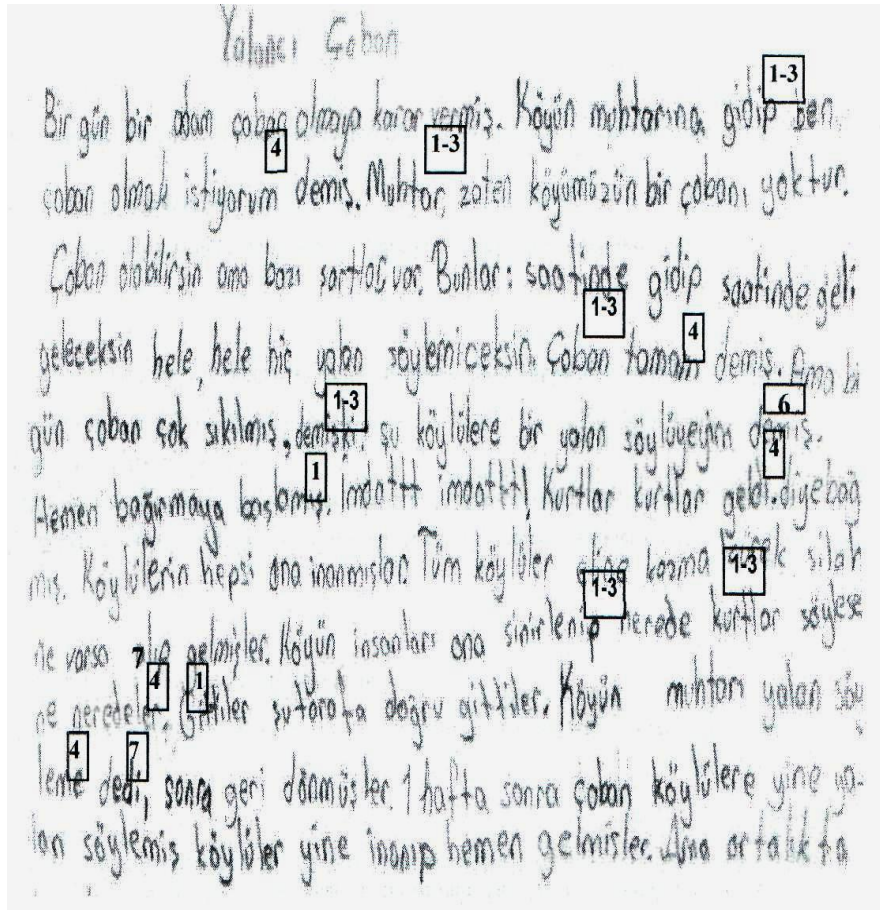 Yalancı Çoban
1-3
Bir gün bir adam çoban olmaya karar vermiş. Köyün muhtarına gidip ben
4 1-3
çoban olmak istiyorum demiş. Muhtar, zaten köyümüzün bir çobanı yoktur.
Çoban olabilirsin ama bazı şartlar var. Bunlar: saatinde gidip saatinde geli
1-3 4
geleceksin hele, hele hiç yalan söylemiceksin. Çoban tamam demiş. Ama bi
1-3 6
gün çoban çok sıkılmış, demişki, şu köylülere bir yalan söylüyeyim demiş.
1 4
Hemen bağırmaya başlamış. İmdattt imdattt! Kurtlar kurtlar geldi. diye bağ
1-3 1-3
mış. Köylülerin hepsi ona inanmışlar. Tüm köylüler eline kazma kürek silah
ne varsa alıp gelmişler. Köyün insanları ona sinirlenip nerede kurtlar söylese
7 4 1
ne neredeler. Gittiler şutarafa doğru gittiler. Köyün muhtarı yalan söy
4 7
leme dedi, sonra geri dönmüşler. 1 hafta sonra çoban köylülere yine ya-
lan söylemiş köylüler yine inanıp hemen gelmişler. Ama ortalıkta